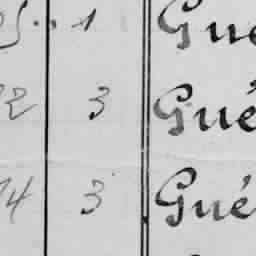 25. . 1 Gue
22 3 Gué
24 3 Gué